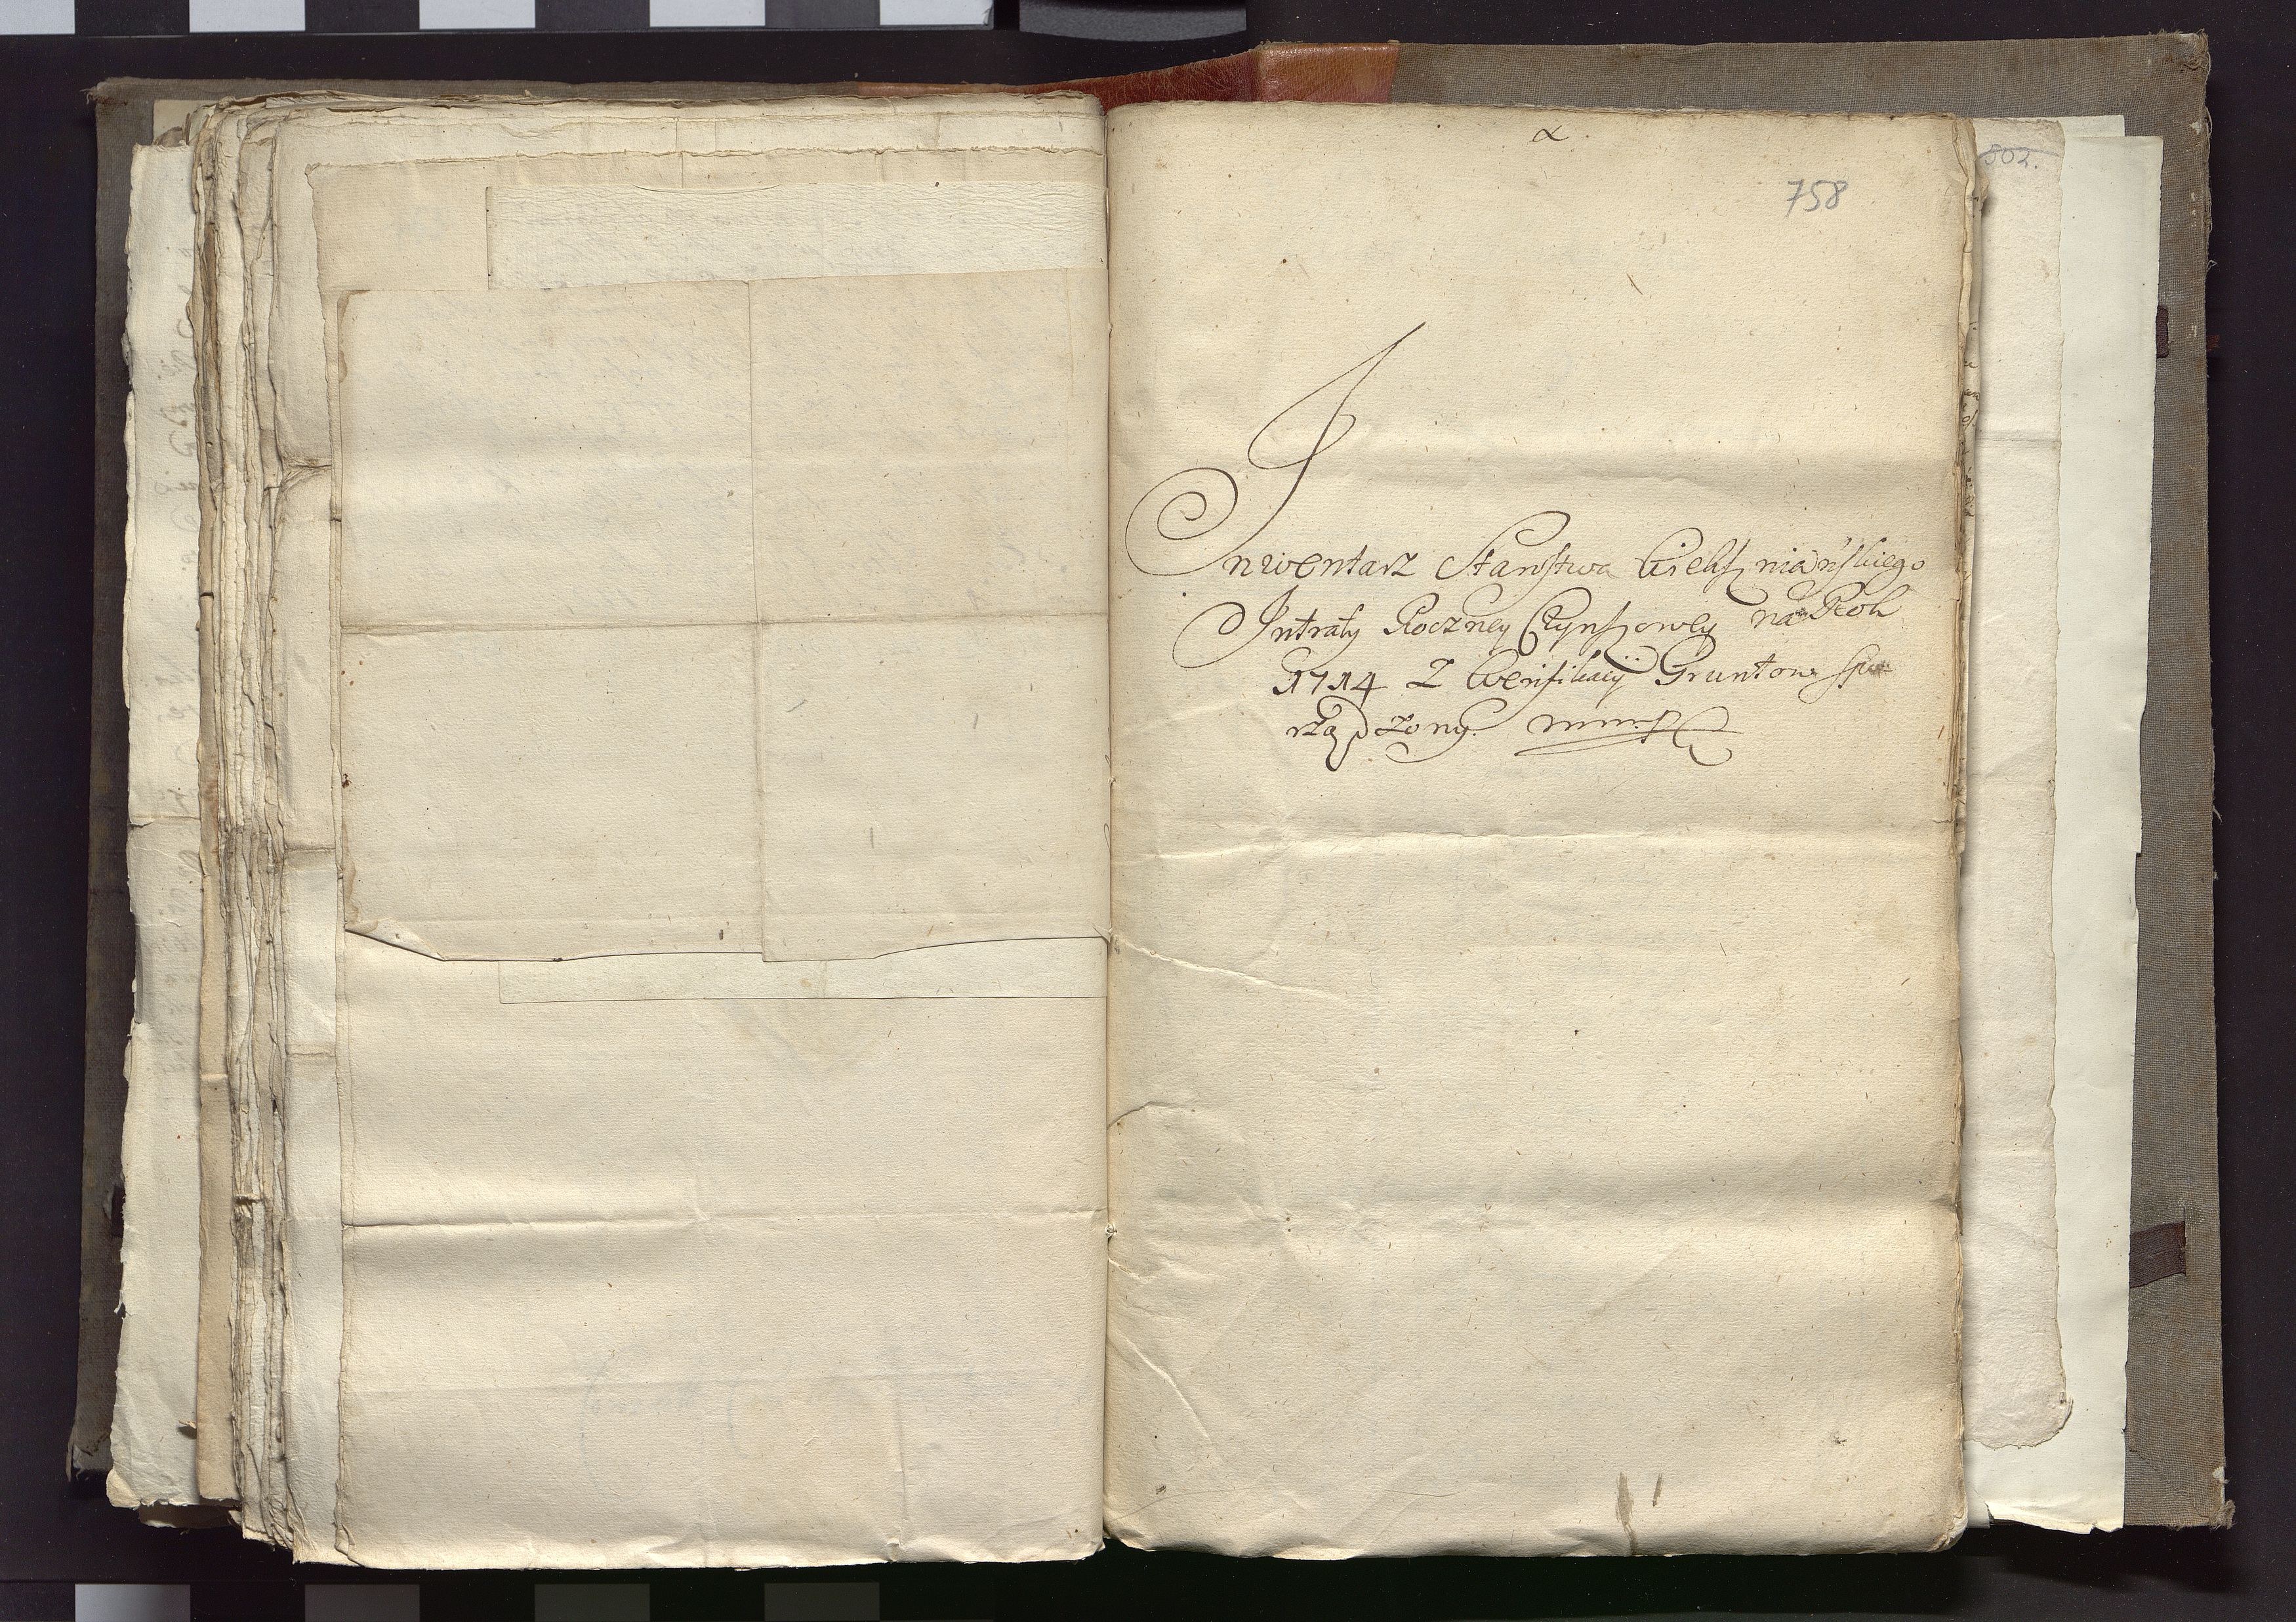 α
758
802.
Inwentarz Starostwa Gielgudzianskiego
Intraty Roczney Czynszowey na Rok
1714 Z Weryfikacij Gruntow spo
rządzony. mmp